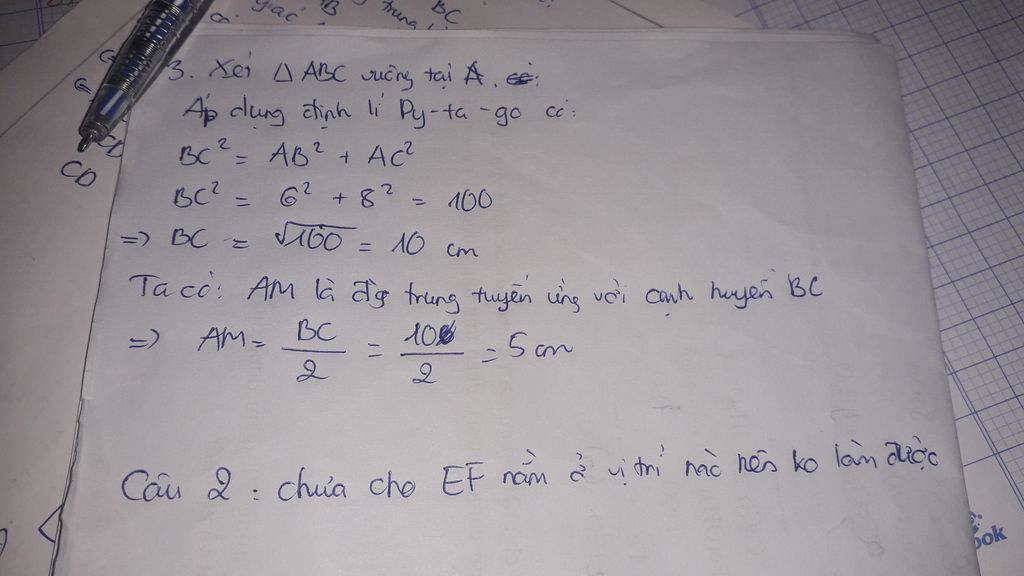 giác
B
trung
BC
CD
CD
3. Xét △ ABC vuông tại A. có:
Áp dụng định lí Py-ta-go có:
BC² = AB² + AC²
BC² = 6² + 8² = 100
=> BC = √100 = 10 cm
Ta có: AM là đg trung tuyến ứng với cạnh huyền BC
=> AM = BC/2 = 10/2 = 5 cm
Câu 2 : chưa cho EF nằm ở vị trí nào nên ko làm được
ook